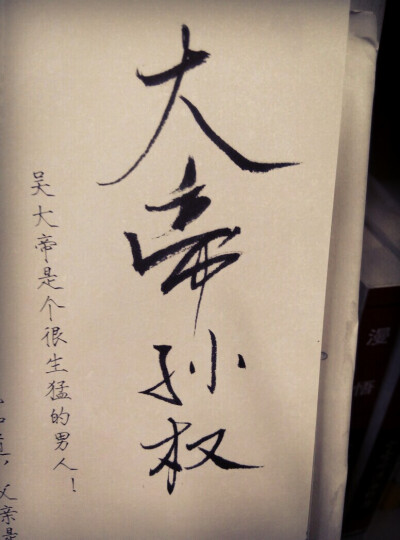 大帝孙权
吴大帝是个很生猛的男人！
道，父亲是
漫
悟